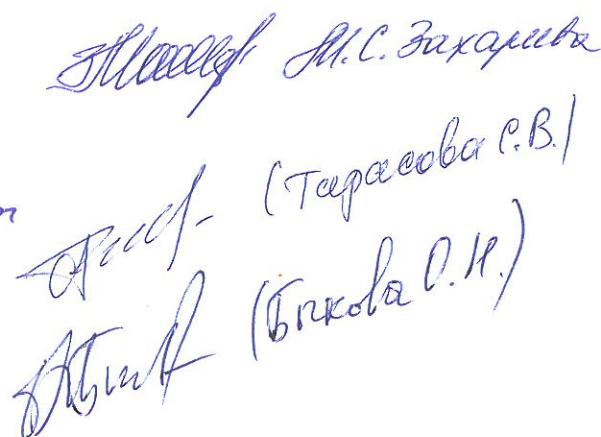 М.С. Захарова
(Тарасова С.В.)
(Быкова О.Н.)